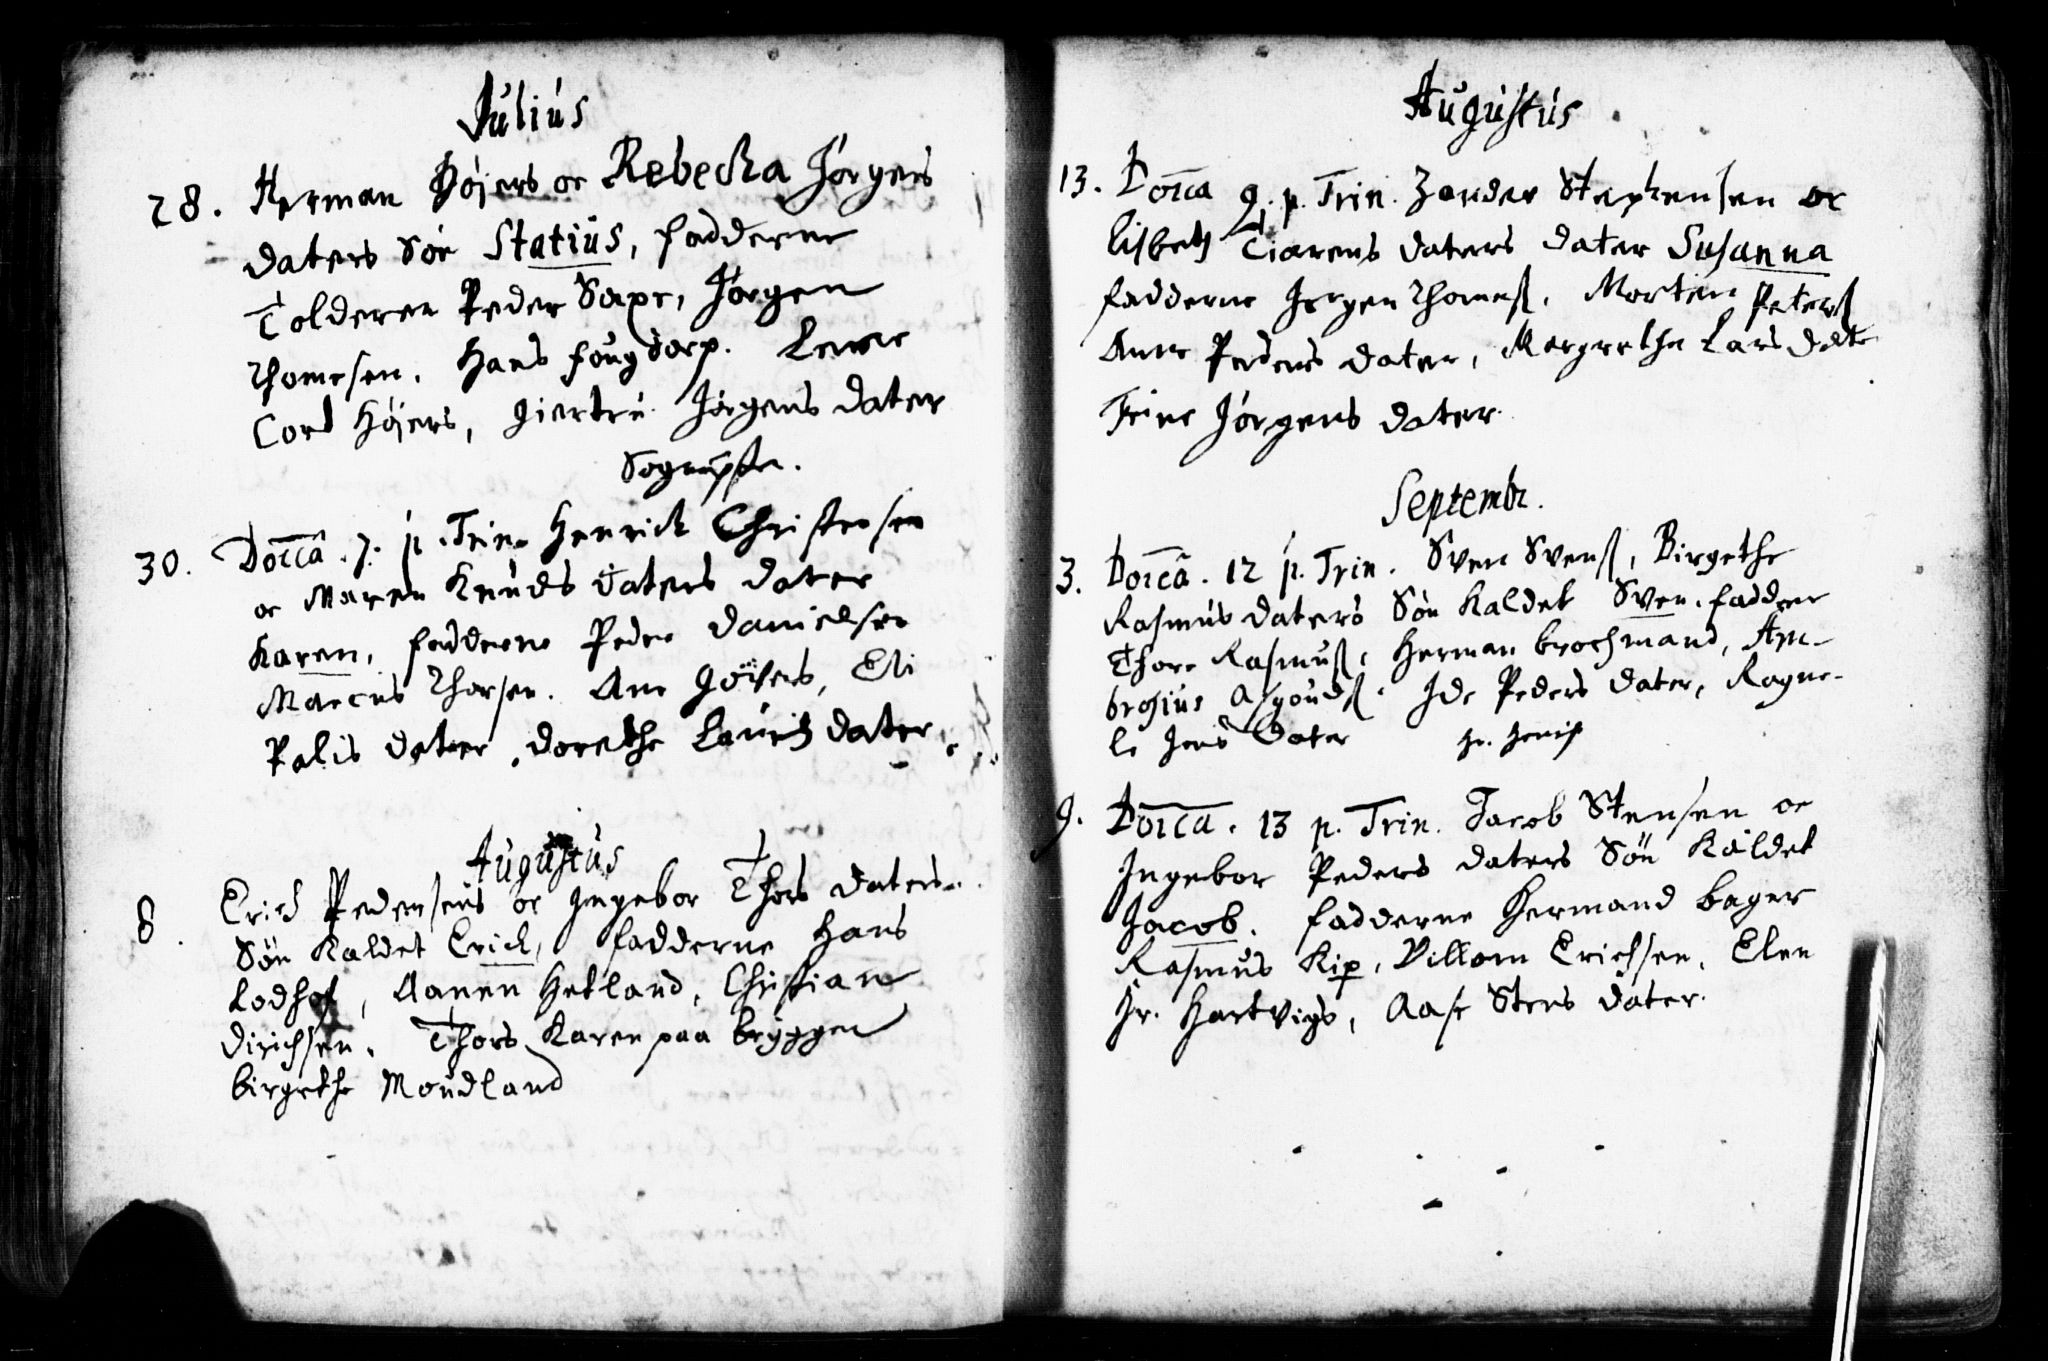 Julius
28. Herman Höjers oc Rebecka Jörgens
daters Sön Statius, fadderne
Tolderen Peder Saxe, Jörgen
Thomesen. Hans fougdorp. Lene
Cord Höjers, Giertru Jörgens dater
30. Dõicâ. 7. p. Trin. Henrick Christensen
oc Maren Knuds daters dater
Karen, fadderne Peder Danielsen
Marcus Thorsen. Ane Govers, Eli
Palis dater, dorethe Lauritz dater.
Augustus
8. Erich Pedersens oc Ingebor Thors daters
Sön Kaldet Erick, fadderne Hans
Lodhof, Aanen Hetland, Christian
Dirichsen. Thors Karen paa bryggen
birgethe Moudland
Augustus
13. Dõica 9. p. Trin. Zander Stephensen oc
Lisbeth Tiorens daters dater Susanna
fadderne Jörgen Thomeß, Morten Peterß
Anne Peders dater, Margrethe Lars dater
Trine Jörgens dater.
Septembr.
3. Dõicâ. 12 p. Trin. Sven Svenß, Birgethe
Rasmus daters Sön Kaldet Sven. fadderne
Thore Rasmuß, Herman brochmand, Am-
brosius Asgoudß. Ide Peders dater, Ragne-
le Jens dater
9. Dõica. 13 p. Trin. Jacob Stensen oc
Ingebor Peders daters Sön Kaldet
Jacob. fadderne Hermand bager
Rasmus Kip, Villom Erichsen, Elen
Hr. Hartvigs, Aase Stens dater.